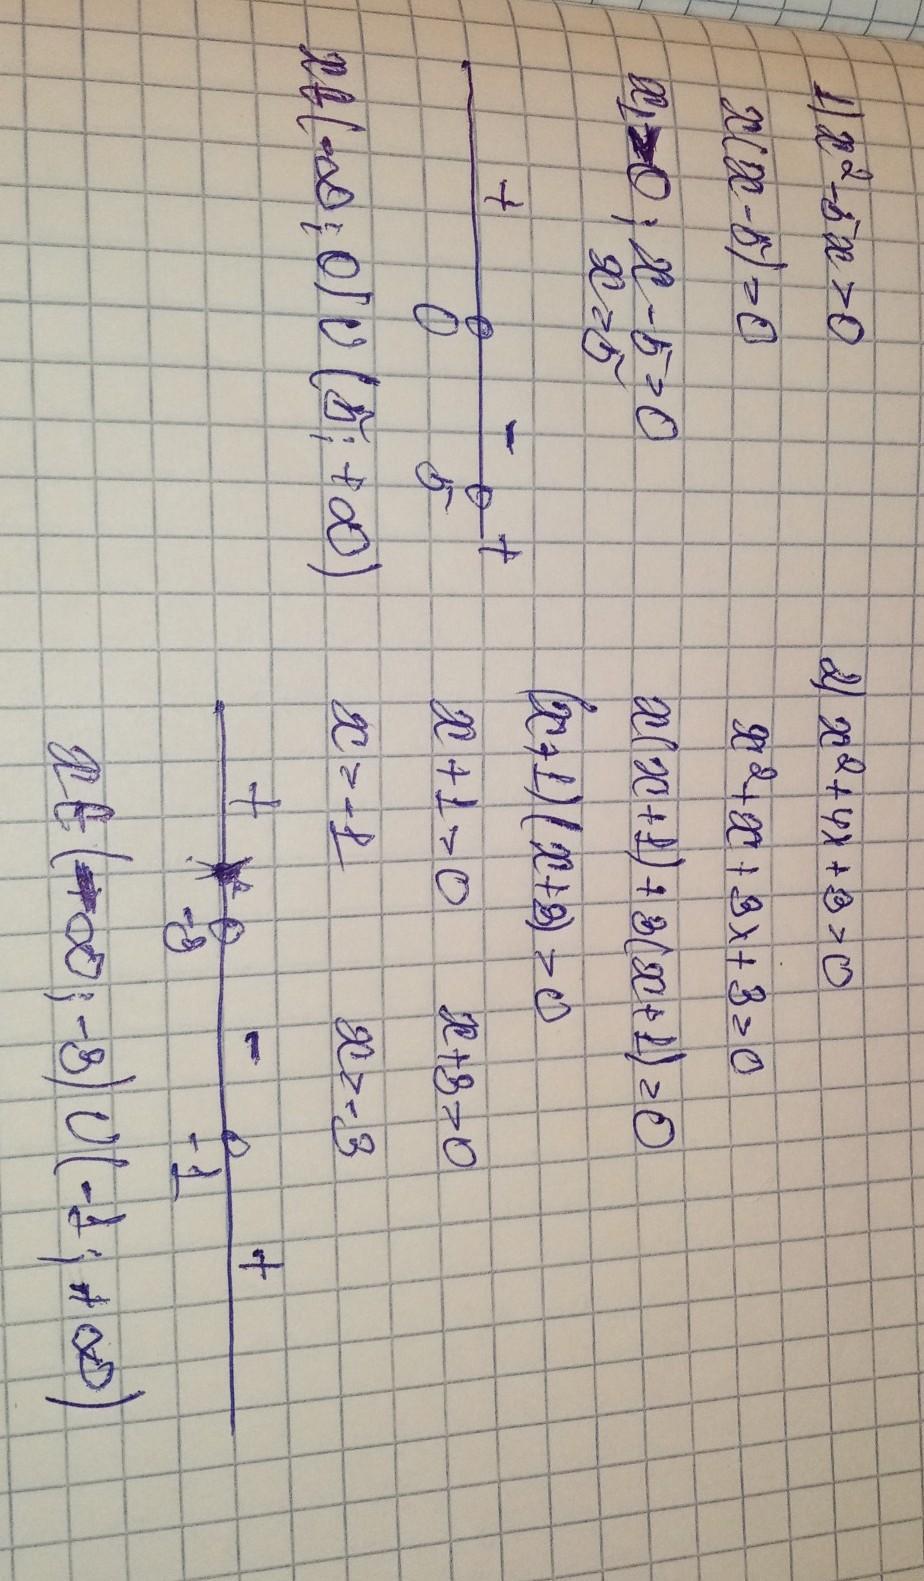 1) x² - 5x > 0
x(x - 5) = 0
x₁ = 0; x - 5 = 0
x = 5
+ - +
0 5
x ∈ (-∞; 0) ∪ (5; +∞)
2) x² + 4x + 3 > 0
x² + x + 3x + 3 = 0
x(x + 1) + 3(x + 1) = 0
(x + 1)(x + 3) = 0
x + 1 = 0 x + 3 = 0
x = -1 x = -3
+ - +
-3 -1
x ∈ (-∞; -3) ∪ (-1; +∞)